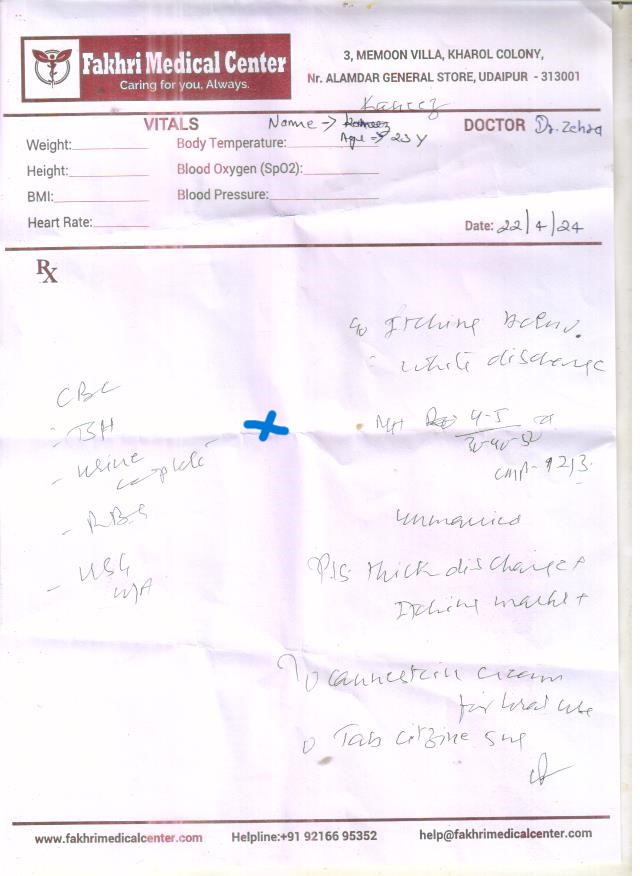 Fakhri Medical Center
Caring for you, Always.
3, MEMOON VILLA, KHAROL COLONY,
Nr. ALAMDAR GENERAL STORE, UDAIPUR - 313001
Kaneez
VITALS
Name → Kaneez
Age → 23 Y
DOCTOR Dr. Zehra
Weight:
Body Temperature:
Height:
Blood Oxygen (SpO2):
BMI:
Blood Pressure:
Heart Rate:
Date: 22/4/24
Rx
c/o Itching
white discharge
CBC
- TSH
- urine complete
- RBS
- USG
MH 4-5
30-40-50
LMP - 12/3
unmarried
P/S thick discharge +
Itching marks +
canestein cream
for local use
Tab citzine
www.fakhrimedicalcenter.com
Helpline:+91 92166 95352
help@fakhrimedicalcenter.com